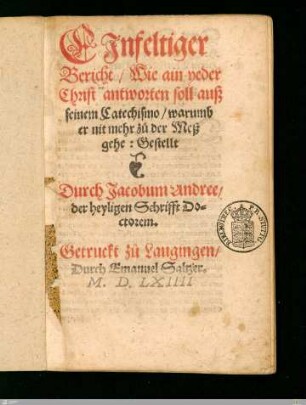 EInfeltiger
Bericht / Wie ain yeder
Christ antworten soll auß
seinem Catechismo / warumb
er nit mehr zů der Meß
gehe: Gestellt
Durch Jacobum Andree /
der heyligen Schrifft Do-
ctorem.
Getruckt zů Laugingen /
Durch Emanuel Saltzer.
M. D. LXIIII